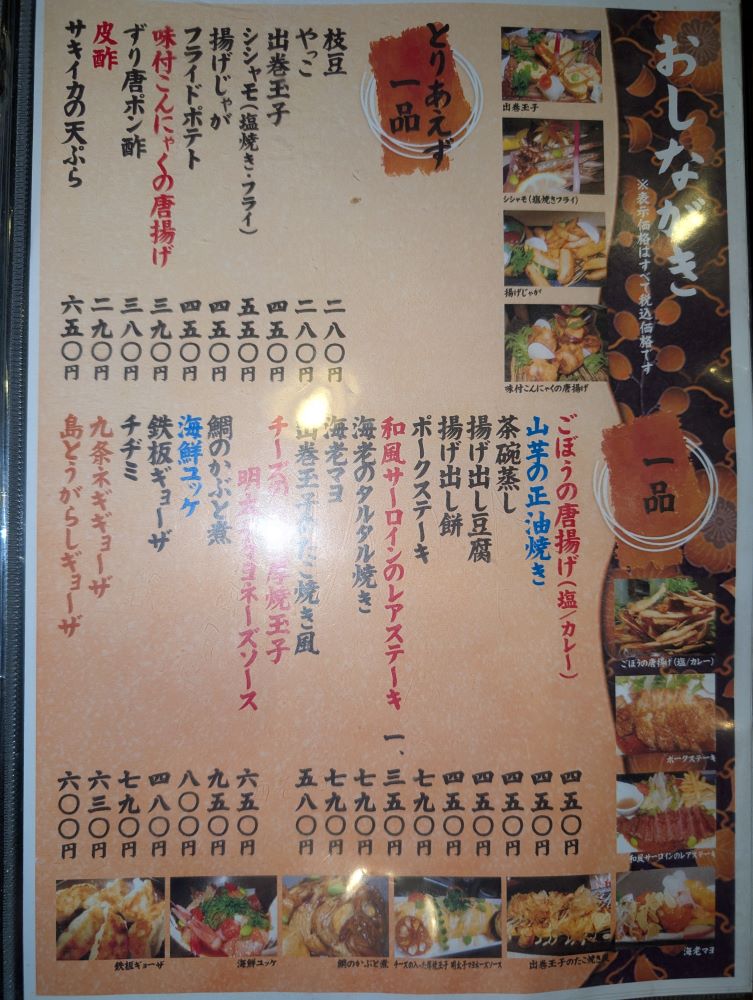 おしながき
※表示価格はすべて税込価格です
とりあえず
一品
枝豆 二八〇円
やっこ 二八〇円
出巻玉子 四五〇円
シシャモ（塩焼き・フライ） 五五〇円
揚げじゃが 四五〇円
フライドポテト 四五〇円
味付こんにゃくの唐揚げ 三九〇円
ずり唐ポン酢 三八〇円
皮酢 二九〇円
サキイカの天ぷら 六五〇円
出巻玉子
シシャモ（塩焼きフライ）
揚げじゃが
味付こんにゃくの唐揚げ
一品
ごぼうの唐揚げ（塩/カレー） 四五〇円
山芋の正油焼き 四五〇円
茶碗蒸し 四五〇円
揚げ出し豆腐 四五〇円
揚げ出し餅 四五〇円
ポークステーキ 七九〇円
和風サーロインのレアステーキ 一、三五〇円
海老のタルタル焼き 七九〇円
海老マヨ 七九〇円
出巻玉子のたこ焼き風 五八〇円
チーズの厚焼玉子
明太子マヨネーズソース 六五〇円
鯛のかぶと煮 九五〇円
海鮮ユッケ 八〇〇円
鉄板ギョーザ 四八〇円
チヂミ 七九〇円
九条ネギギョーザ 六三〇円
島とうがらしギョーザ 六〇〇円
ごぼうの唐揚げ（塩/カレー）
ポークステーキ
和風サーロインのレアステーキ
海老マヨ
出巻玉子のたこ焼き風
チーズの入った厚焼玉子 明太子マヨネーズソース
鯛のかぶと煮
海鮮ユッケ
鉄板ギョーザ